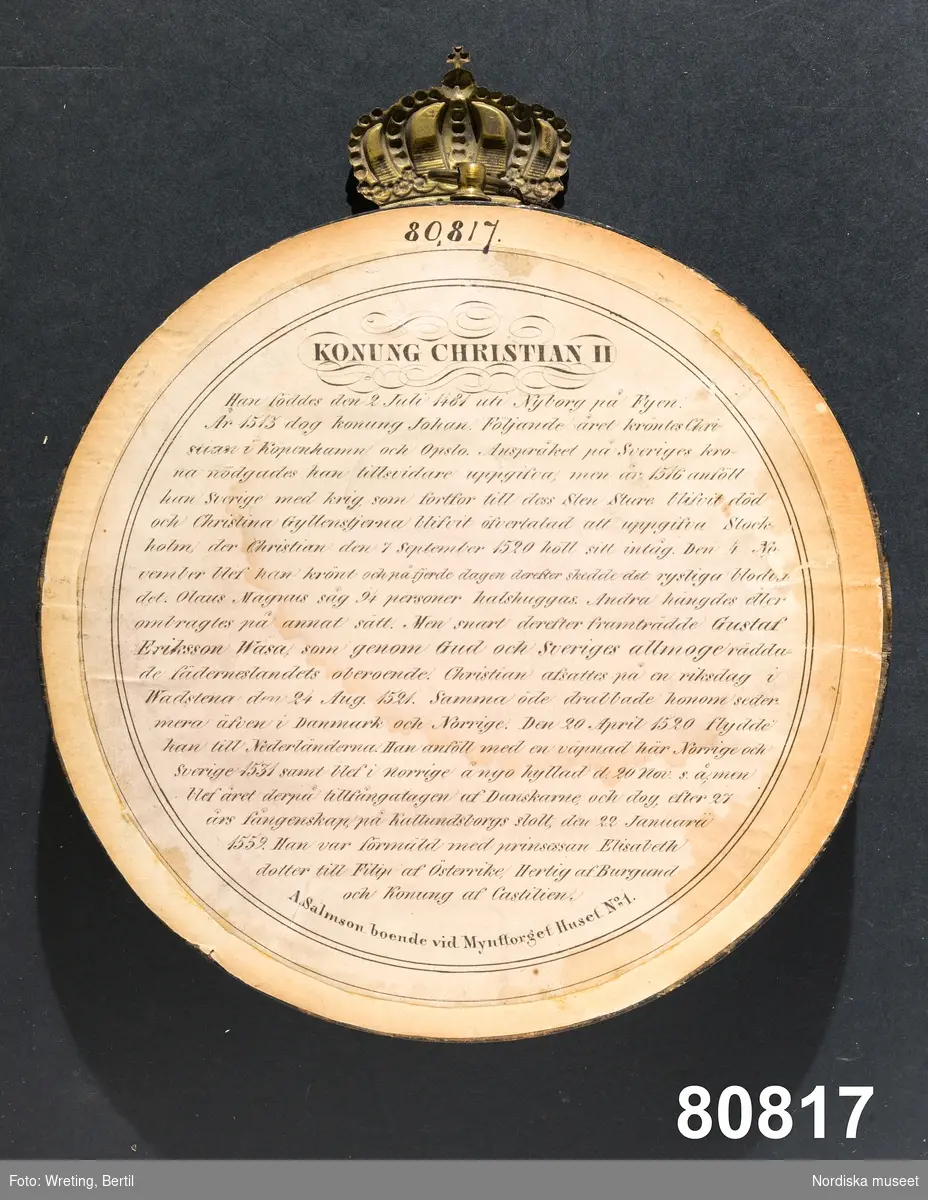 80,817.
KONUNG CHRISTIAN II
Han föddes den 2 Juli 1481 uti Nyborg på Fyen.
År 1513 dog konung Johan. Följande året kröntes Chri-
stian i Köpenhamn och Opslo. Anspråket på Sveriges kro-
na nödgades han tillsvidare uppgifva, men år 1516 anföll
han Sverige med krig, som fortfor till dess Sten Sture blifvit död
och Christina Gyllenstjerna blifvit öfvertalad att uppgifva Stock-
holm, der Christian den 7 September 1520 höll sitt intåg. Den 4 No-
vember blef han krönt och på fjerde dagen derefter skedde det rysliga blodba-
det. Olaus Magnus såg 94 personer halshuggas. Andra hängdes eller
ombragtes på annat sätt. Men snart derefter framträdde Gustaf
Eriksson Wasa, som genom Gud och Sveriges allmoge rädda-
de fäderneslandets oberoende. Christian afsattes på en riksdag i
Wadstena den 24 Aug. 1521. Samma öde drabbade honom seder-
mera äfven i Danmark och Norrige. Den 20 April 1520 flydde
han till Nederländerna. Han anföll med en väpnad här Norrige och
Sverige 1531 samt blef i norrige å nyo hyllad d. 20 Nov. s. å, men
blef året derpå tillfångatagen af Danskarne, och dog, efter 27
års fångenskap, på Kallundsborgs slott, den 22 Januarii
1559. Han var förmäld med prinsessan Elisabeth
dotter till Filip af Österrike, Hertig af Burgund
och Konung af Castilien.
A. Salmson boende vid Mynttorget Huset No. 1.
80817
Foto: Wreting, Bertil
Nordiska museet